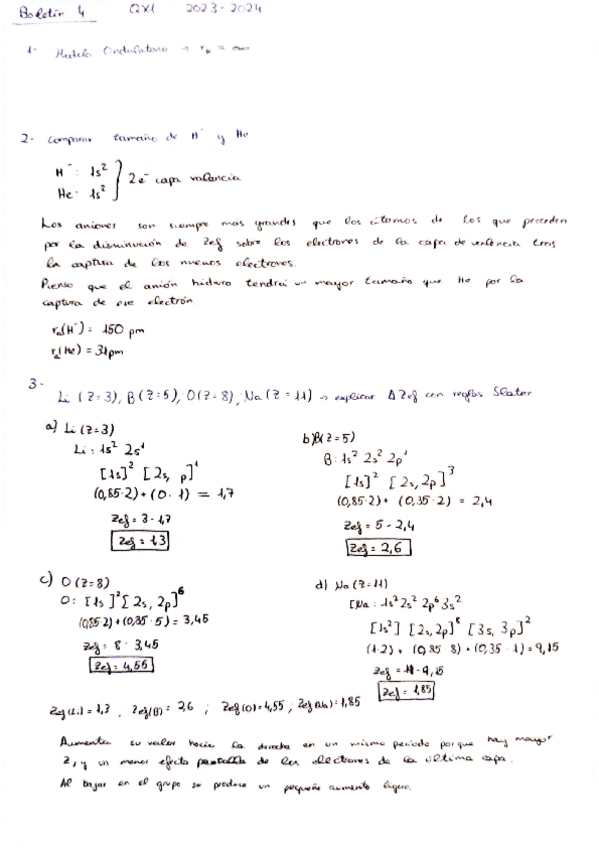 Boletín 4 QX1 2023-2024
1- Modelo Ondulatorio → r∞ = ∞
2- Comparar tamaño de H⁻ y He
H⁻: 1s²
He: 1s² } 2e⁻ capa valencia
Los aniones son siempre más grandes que los átomos de los que proceden
por la disminución de Zef sobre los electrones de la capa de valencia tras
la captura de los nuevos electrones.
Pienso que el anión hidruro tendrá un mayor tamaño que He por la
captura de ese electrón
r(H⁻) = 150 pm
r(He) = 31pm
3-
Li (Z=3), B(Z=5), O(Z=8), Na(Z=11) → explicar ΔZef con reglas Slater
a) Li (Z=3)
Li: 1s² 2s¹
[1s]² [2s, p]¹
(0,85·2) + (0·1) = 1,7
Zef = 3 - 1,7
Zef = 1,3
b) B(Z=5)
B: 1s² 2s² 2p¹
[1s]² [2s, 2p]³
(0,85·2) + (0,35·2) = 2,4
Zef = 5 - 2,4
Zef = 2,6
c) O (Z=8)
O: [1s]² [2s, 2p]⁶
(0,85·2) + (0,35·5) = 3,45
Zef = 8 - 3,45
Zef = 4,55
d) Na (Z=11)
[Na: 1s² 2s² 2p⁶ 3s²
[1s²] [2s, 2p]⁸ [3s, 3p]²
(1·2) + (0,85·8) + (0,35·1) = 9,15
Zef = 11 - 9,15
Zef = 1,85
Zef(Li) = 1,3, Zef(B) = 2,6; Zef(O) = 4,55, Zef(Na) = 1,85
Aumenta su valor hacia la derecha en un mismo periodo porque hay mayor
Z, y un menor efecto pantalla de los electrones de la última capa.
Al bajar en el grupo se produce un pequeño aumento